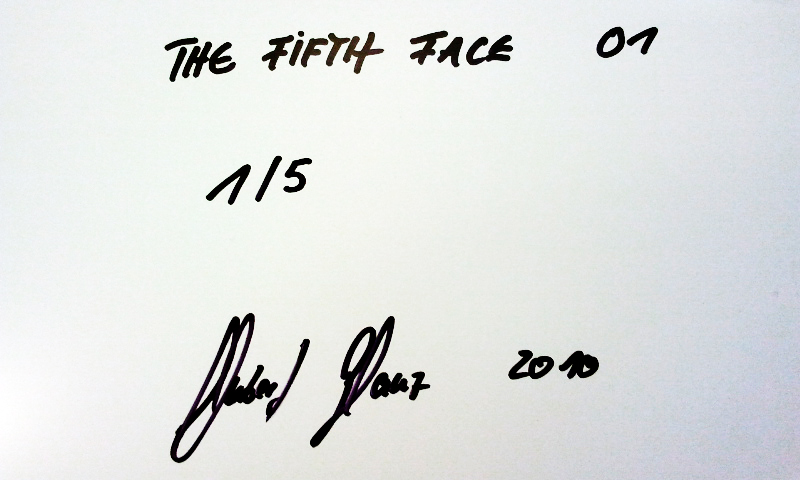 THE FIFTH FACE 01
1/5
2010